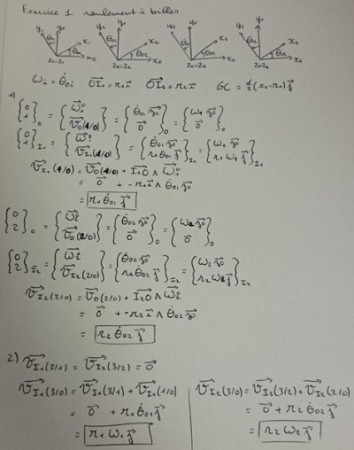 Exercice 1 roulement à billes
ωi = θ̇0i   OI₁ = r₁ i   OI₂ = r₂ i   GC = ½(r₂-r₁) j
1) {0/1}₀ = {Ω / V₀(1/0)}₀ = {θ̇01 z₀ / 0}₀ = {ω1 z₀ / 0}₀
{0/1}I₁ = {Ω / VI₁(1/0)} = {θ̇01 z₀ / r₁ θ̇01 j}I₁ = {ω1 z₀ / r₁ ω1 j}I₁
VI₁(1/0) = V₀(1/0) + I₁O ∧ Ω
= 0 + -r₁ i ∧ θ̇01 z₀
= r₁ θ̇01 j
{0/2}₀ = {Ω / V₀(2/0)}₀ = {θ̇02 z₀ / 0}₀ = {ω2 z₀ / 0}₀
{0/2}I₂ = {Ω / VI₂(2/0)} = {θ̇02 z₀ / r₂ θ̇02 j}I₂ = {ω2 z₀ / r₂ ω2 j}I₂
VI₂(2/0) = V₀(2/0) + I₂O ∧ Ω
= 0 + -r₂ i ∧ θ̇02 z₀
= r₂ θ̇02 j
2) VI₁(3/1) = VI₂(3/2) = 0
VI₁(3/0) = VI₁(3/1) + VI₁(1/0)
= 0 + r₁ θ̇01 j
= r₁ ω1 j
VI₂(3/0) = VI₂(3/2) + VI₂(2/0)
= 0 + r₂ θ̇02 j
= r₂ ω2 j